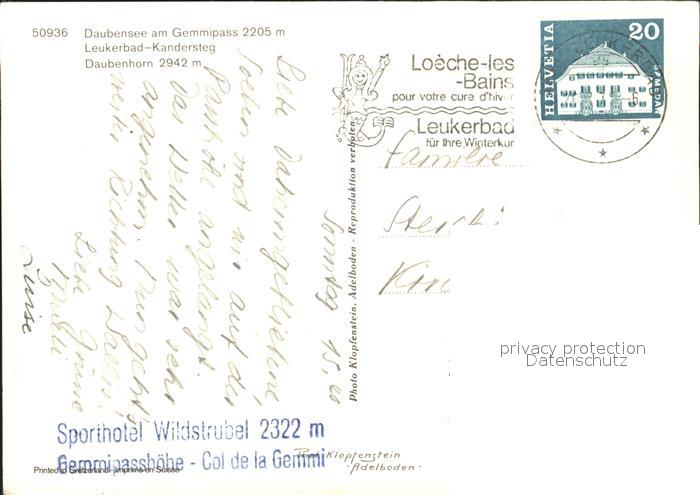 50936 Daubensee am Gemmipass 2205 m
Leukerbad-Kandersteg
Daubenhorn 2942 m
Loèche-les
-Bains
pour votre cure d'hiver
Leukerbad
für Ihre Winterkur
HELVETIA
20
SAMEDAN
Familie
Sonntag 15.00
Liebe Daheimgebliebene,
Soeben sind wir auf der
Passhöhe angelangt.
Das Wetter war sehr
angenehm. Nun geht's
weiter Richtung Wallis!
Liebe Grüsse
Luise
Photo Klopfenstein, Adelboden - Reproduktion verboten
privacy protection
Datenschutz
Sporthotel Wildstrubel 2322 m
Gemmipasshöhe - Col de la Gemmi
Printed in Switzerland - Imprimé en Suisse
Klopfenstein
-Adelboden-